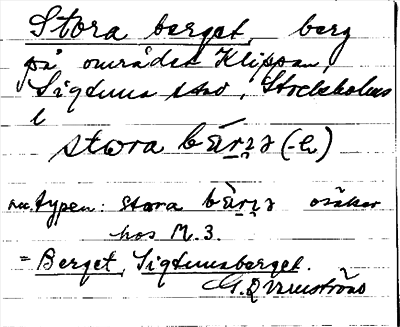 Stora berget, berg
på området Klippan,
Sigtuna stad, Stockholms
l
stora bärjə (-h)
typen: stora bärjə osäker
hos M. 3.
= Berget, Sigtunaberget.